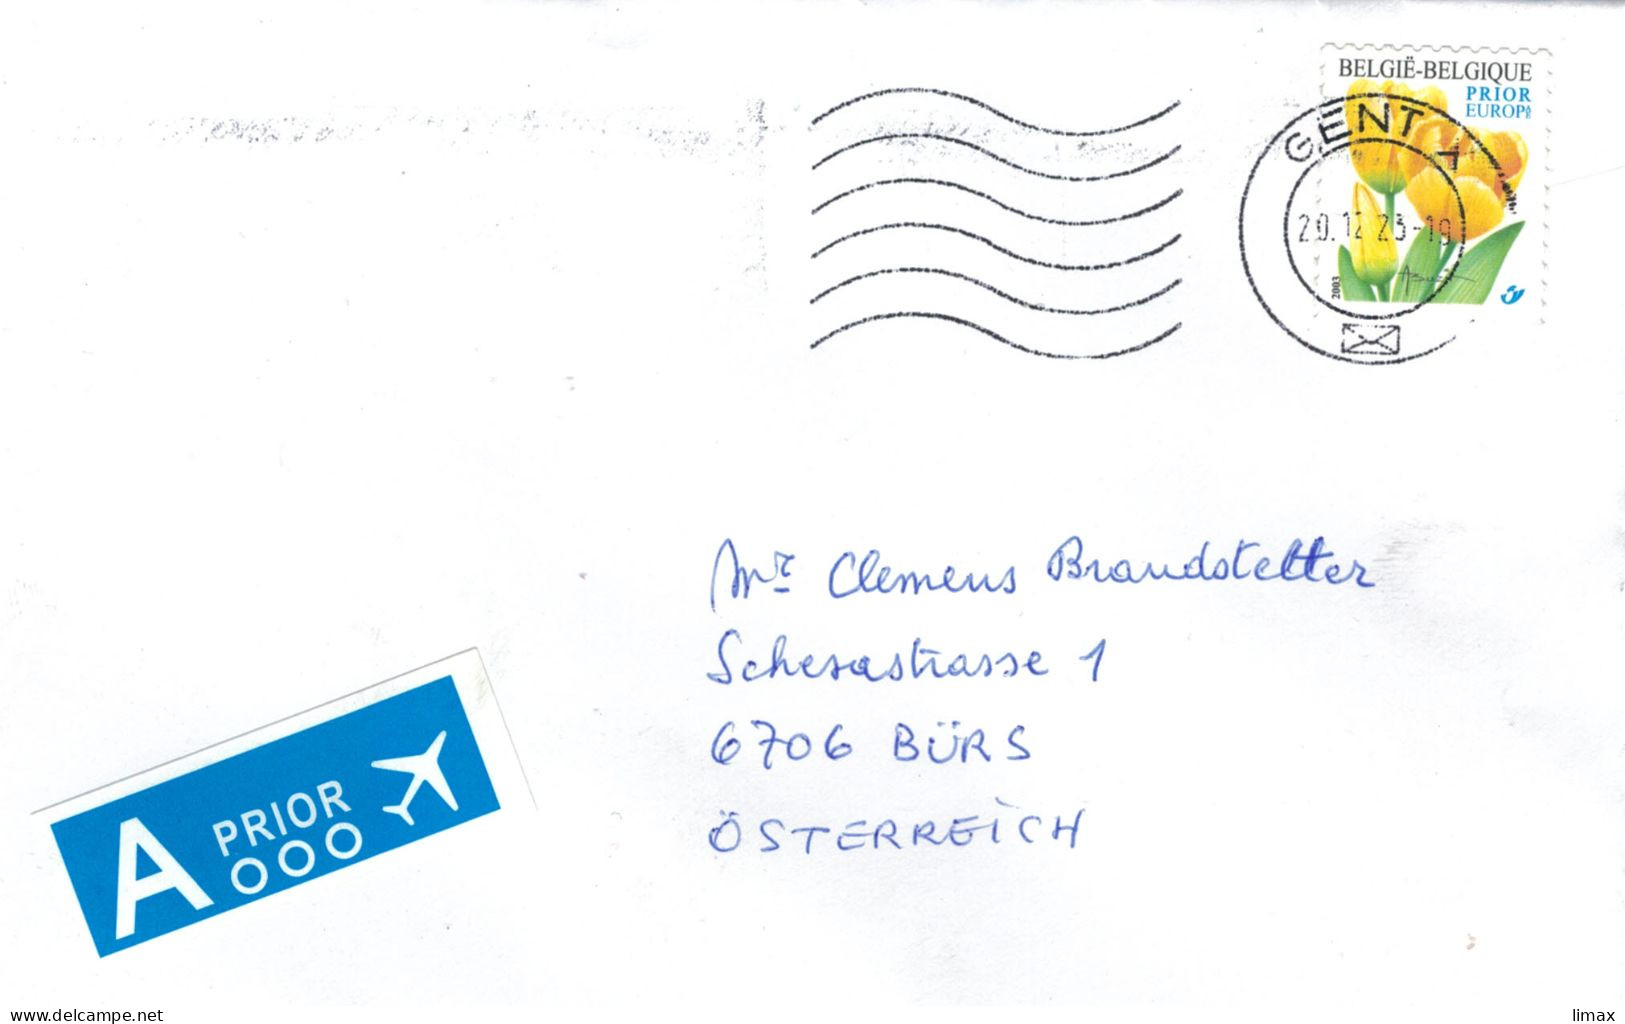 BELGIË-BELGIQUE
PRIOR
EUROPA
GENT
20.12 23-19
2003
Mr Clemens Brandstetter
Schesastrasse 1
6706 BÜRS
ÖSTERREICH
A PRIOR
www.delcampe.net
limax